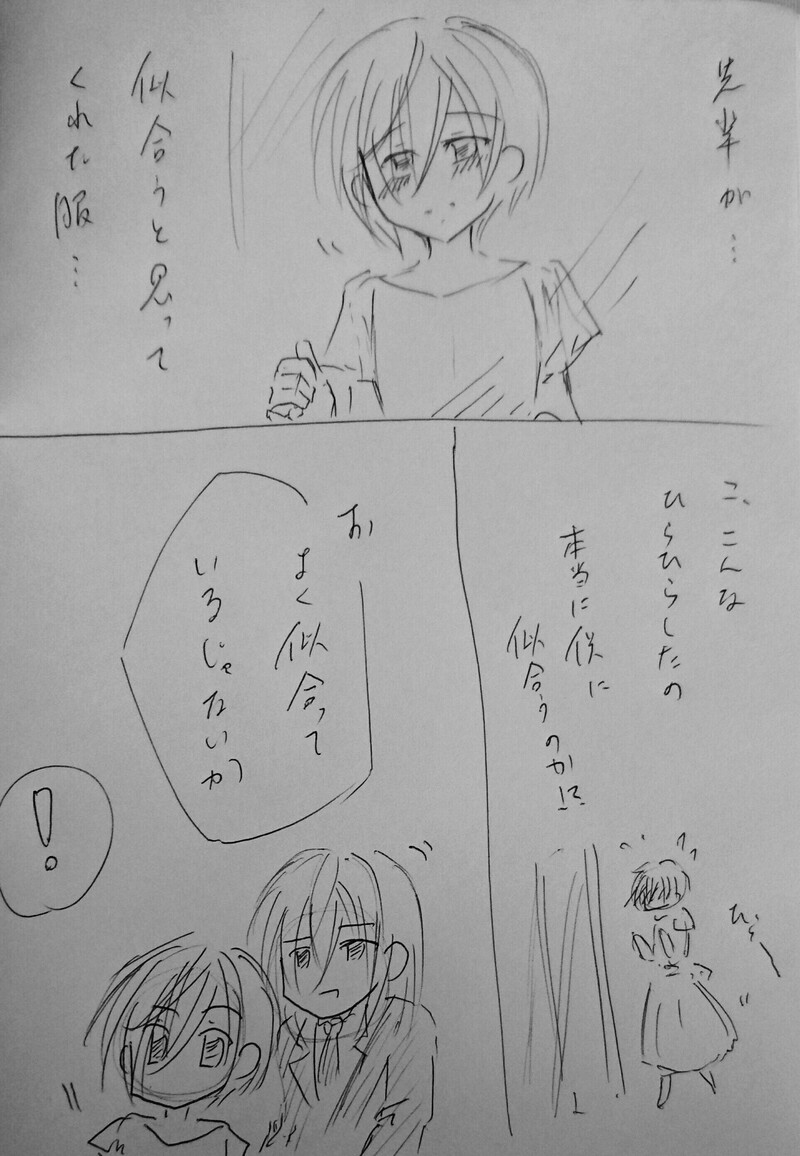 先輩が…
似合うと思って
くれた服…
こ、こんな
ひらひらしたの
本当に僕に
似合うのか!?
お
よく似合って
いるじゃないか
!